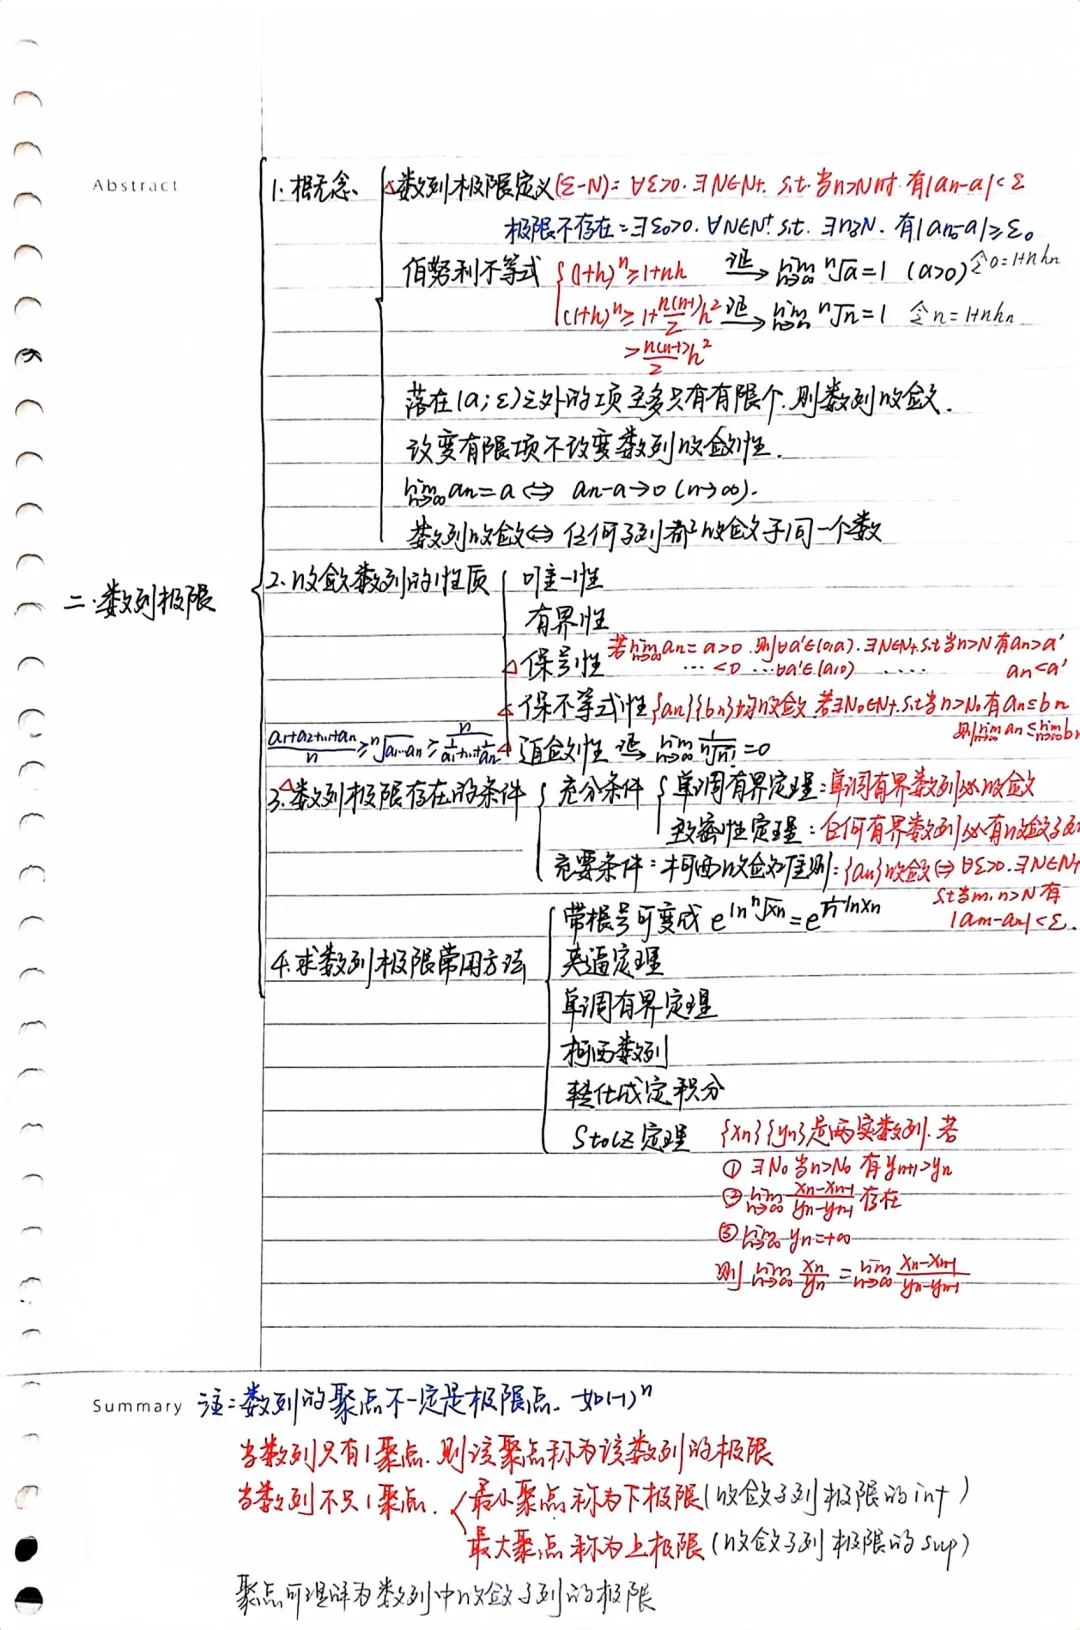 Abstract
二.数列极限
1.概念
△数列极限定义(ε-N):∀ε>0.∃N∈N+. s.t.当n>N时.有|an-a|<ε
极限不存在:∃ε0>0.∀N∈N+ s.t. ∃n0≥N.有|an0-a|≥ε0
伯努利不等式 { (1+h)^n≥1+nh 证→ lim n→∞ n√a=1 (a>0) 令a=1+nhn
(1+h)^n≥1+n(n-1)/2 h² 证→ lim n→∞ n√n=1 令n=1+nhn
>n(n-1)/2 h²
落在(a;ε)之外的项至多只有有限个.则数列收敛.
改变有限项不改变数列收敛性.
lim n→∞ an=a ⇔ an-a→0 (n→∞).
数列收敛⇔任何子列都收敛于同一个数
2.收敛数列的性质
唯一性
有界性
△保号性 若lim n→∞ an=a>0.则∀a'∈(0,a).∃N∈N+.s.t当n>N有an>a'
… <0 … ∀a'∈(a,0) … … an<a'
△保不等式性{an}{bn}均收敛.若∃N0∈N+.s.t当n>N0有an≤bn
则lim n→∞ an≤lim n→∞ bn
(a1+a2+…+an)/n ≥ n√a1…an ≥ n/(1/a1+…+1/an) △迫敛性 证→ lim n→∞ 1/n√n! =0
3.△数列极限存在的条件
充分条件 { 单调有界定理:单调有界数列必收敛
致密性定理:任何有界数列必有收敛子列
充要条件:柯西收敛准则:{an}收敛⇔∀ε>0.∃N∈N+
s.t当m,n>N有
|am-an|<ε.
4.求数列极限常用方法
带根号可变成 e^ln n√xn=e^1/n lnxn
夹逼定理
单调有界定理
柯西数列
转化成定积分
Stolz定理 {xn}{yn}是两实数列.若
① ∃N0当n>N0有yn+1>yn
② lim n→∞ (xn-xn-1)/(yn-yn-1) 存在
③ lim n→∞ yn=+∞
则 lim n→∞ xn/yn = lim n→∞ (xn-xn-1)/(yn-yn-1)
Summary 注:数列的聚点不一定是极限点.如(-1)^n
当数列只有1聚点.则该聚点称为该数列的极限
当数列不只1聚点. < 最小聚点称为下极限(收敛子列极限的inf)
最大聚点称为上极限(收敛子列极限的sup)
聚点可理解为数列中收敛子列的极限